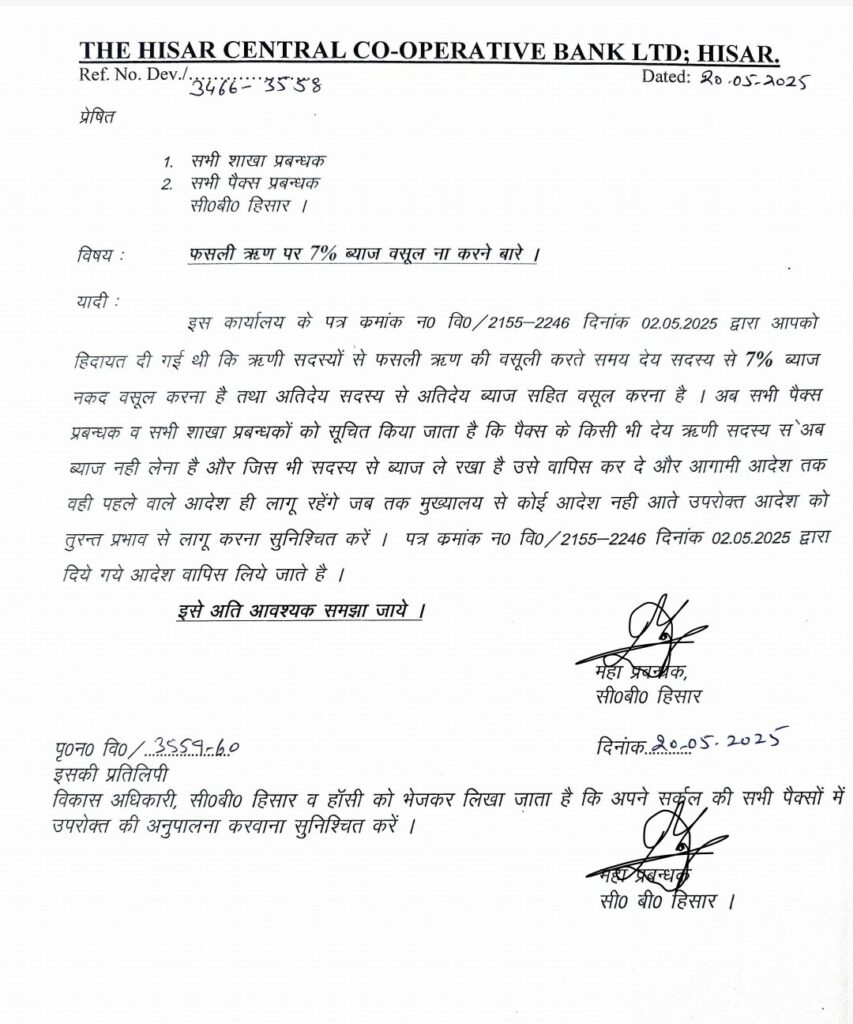 THE HISAR CENTRAL CO-OPERATIVE BANK LTD; HISAR.
Ref. No. Dev./.................. 3466-3558 Dated: 20.05.2025
प्रेषित
1. सभी शाखा प्रबन्धक
2. सभी पैक्स प्रबन्धक
सी०बी० हिसार ।
विषय : फसली ऋण पर 7% ब्याज वसूल ना करने बारे ।
यादी :
इस कार्यालय के पत्र कमांक न0 वि0/2155–2246 दिनांक 02.05.2025 द्वारा आपको
हिदायत दी गई थी कि ऋणी सदस्यों से फसली ऋण की वसूली करते समय देय सदस्य से 7% ब्याज
नकद वसूल करना है तथा अतिदेय सदस्य से अतिदेय ब्याज सहित वसूल करना है । अब सभी पैक्स
प्रबन्धक व सभी शाखा प्रबन्धकों को सूचित किया जाता है कि पैक्स के किसी भी देय ऋणी सदस्य स`अब
ब्याज नही लेना है और जिस भी सदस्य से ब्याज ले रखा है उसे वापिस कर दे और आगामी आदेश तक
वही पहले वाले आदेश ही लागू रहेंगे जब तक मुख्यालय से कोई आदेश नही आते उपरोक्त आदेश को
तुरन्त प्रभाव से लागू करना सुनिश्चित करें । पत्र कमांक न0 वि0/2155–2246 दिनांक 02.05.2025 द्वारा
दिये गये आदेश वापिस लिये जाते है ।
इसे अति आवश्यक समझा जाये ।
महा प्रबन्धक,
सी0बी0 हिसार
पृ0न0 वि0/..3559-60 दिनांक.20.05.2025
इसकी प्रतिलिपी
विकास अधिकारी, सी0बी0 हिसार व हॉसी को भेजकर लिखा जाता है कि अपने सर्कुल की सभी पैक्सों में
उपरोक्त की अनुपालना करवाना सुनिश्चित करें ।
महा प्रबन्धक
सी0 बी0 हिसार ।